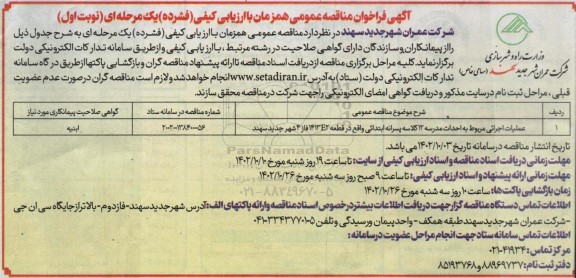 آگهی فراخوان مناقصه عمومی همزمان با ارزیابی کیفی (فشرده) یک مرحله ای (نوبت اول)
وزارت راه و شهرسازی
شرکت عمران شهر جدید سهند (سهامی خاص)
شرکت عمران شهر جدید سهند در نظر دارد مناقصه عمومی همزمان با ارزیابی کیفی (فشرده) یک مرحله ای به شرح جدول ذیل
را از پیمانکاران و سازندگان دارای گواهی صلاحیت در رشته مرتبط ، با ارزیابی کیفی و از طریق سامانه تدارکات الکترونیکی دولت
برگزار نماید. کلیه مراحل برگزاری مناقصه از دریافت اسناد مناقصه تا ارائه پیشنهاد مناقصه گران و بازگشایی پاکتها از طریق درگاه سامانه
تدارکات الکترونیکی دولت (ستاد) به آدرس www.setadiran.ir انجام خواهد شد و لازم است مناقصه گران در صورت عدم عضویت
قبلی ، مراحل ثبت نام در سایت مذکور و دریافت گواهی امضای الکترونیکی را جهت شرکت در مناقصه محقق سازند.
ردیف شرح موضوع مناقصه عمومی شماره مناقصه در سامانه ستاد گواهی صلاحیت پیمانکاری مورد نیاز
۱ عملیات اجرائی مربوط به احداث مدرسه ۱۲ کلاسه پسرانه ابتدائی واقع در قطعه E2 ۱۴۱۳ فاز ۴ شهر جدید سهند ۲۰۰۲۰۰۱۳۸۴۰۰۰۰۵۶ ابنیه
تاریخ انتشار مناقصه در سامانه تاریخ ۱۴۰۲/۱۰/۰۳ می باشد.
مهلت زمانی دریافت اسناد مناقصه و اسناد ارزیابی کیفی از سایت: تا ساعت ۱۹ روز شنبه مورخ ۱۴۰۲/۱۰/۱۰
مهلت زمانی ارائه پیشنهاد و اسناد ارزیابی کیفی: تا ساعت ۹ صبح روز سه شنبه مورخ ۱۴۰۲/۱۰/۲۶
زمان بازگشایی پاکت‌ها: ساعت ۱۰ روز سه شنبه مورخ ۱۴۰۲/۱۰/۲۶
اطلاعات تماس دستگاه مناقصه گزار جهت دریافت اطلاعات بیشتر در خصوص اسناد مناقصه و ارائه پاکتهای الف: آدرس شهر جدید سهند- فاز دوم- بالاتر از جایگاه سی ان جی
- شرکت عمران شهر جدید سهند طبقه همکف - واحد پیمان و رسیدگی و تلفن ۰۴۱-۳۳۴۳۷۷۰۱-۵
اطلاعات تماس سامانه ستاد جهت انجام مراحل عضویت در سامانه:
مرکز تماس: ۴۱۹۳۴-۰۲۱
دفتر ثبت نام: ۸۸۹۶۹۷۳۷ و ۸۵۱۹۳۷۶۸
ParsNamadData
۰۲۱-۸۸۳۴۹۶۷۰-۵